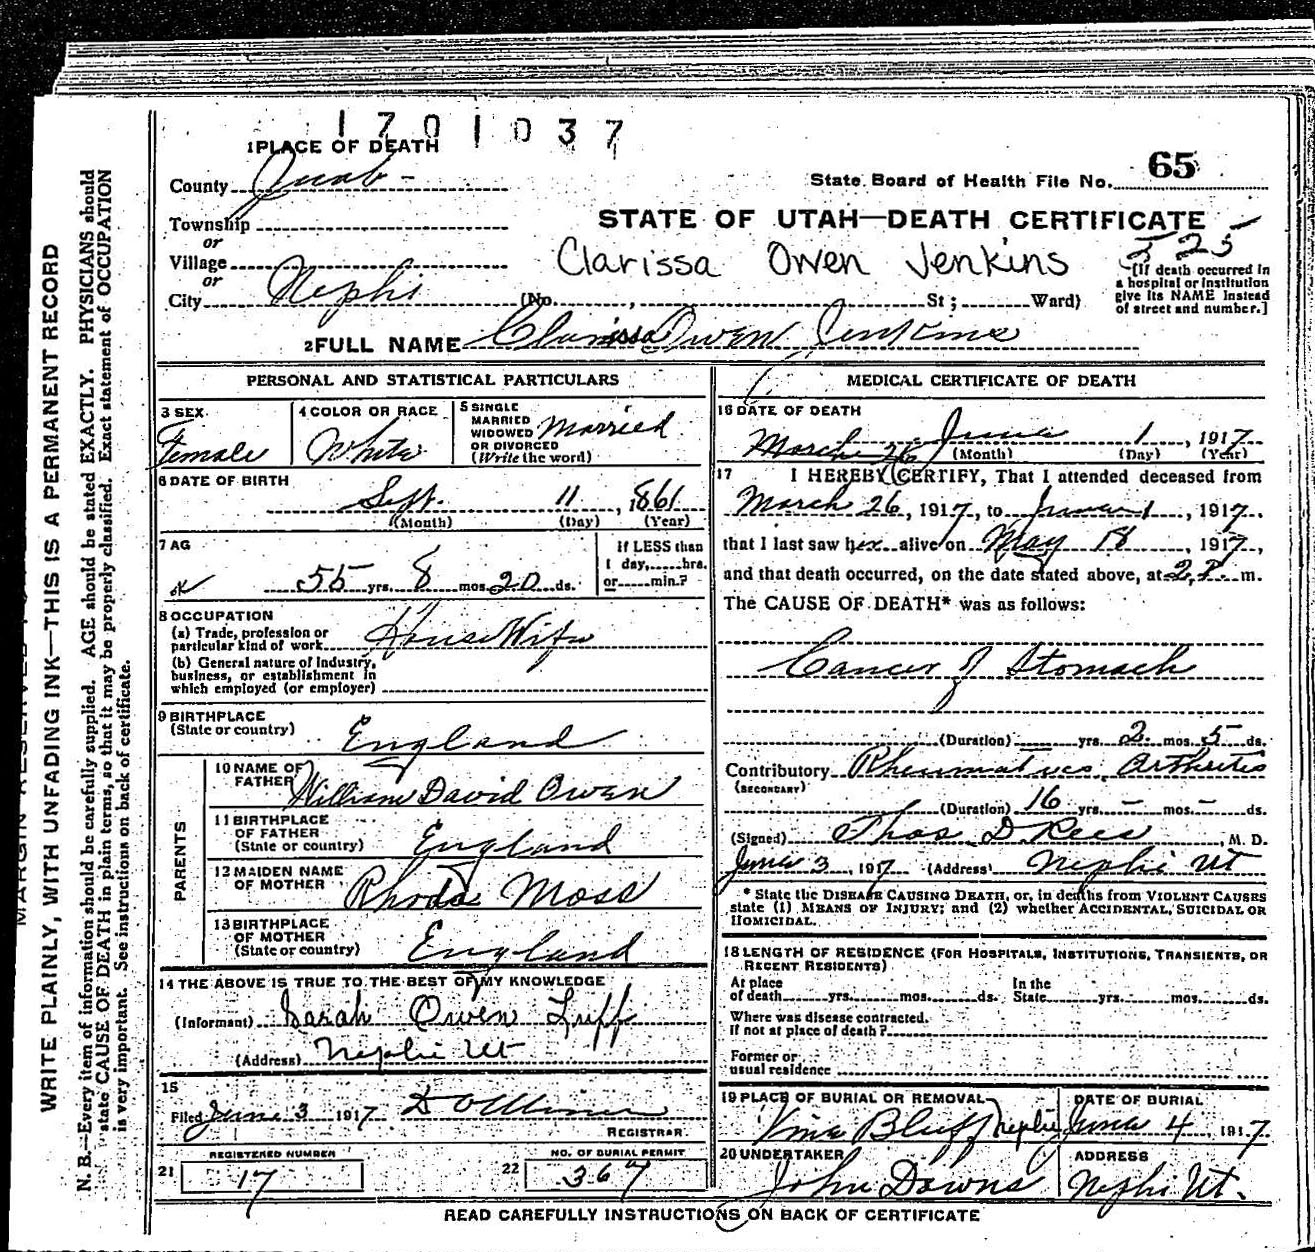 1701037
1 PLACE OF DEATH
County Juab
State Board of Health File No. 65
Township
STATE OF UTAH—DEATH CERTIFICATE
or
525
Village
Clarissa Owen Jenkins
or
[If death occurred in
a hospital or institution
give its NAME instead
of street and number.]
City Nephi (No. , St; Ward)
2 FULL NAME Clarissa Owen Jenkins
PERSONAL AND STATISTICAL PARTICULARS
3 SEX
Female
4 COLOR OR RACE
White
5 SINGLE
MARRIED
WIDOWED
OR DIVORCED
(Write the word)
Married
6 DATE OF BIRTH
Sept. 11, 1861
(Month) (Day) (Year)
7 AG
55 yrs. 8 mos. 20 ds.
If LESS than
1 day, hrs.
or min.?
8 OCCUPATION
(a) Trade, profession or
particular kind of work House Wife
(b) General nature of industry,
business, or establishment in
which employed (or employer)
9 BIRTHPLACE
(State or country) England
PARENTS
10 NAME OF
FATHER William David Owen
11 BIRTHPLACE
OF FATHER
(State or country) England
12 MAIDEN NAME
OF MOTHER Rhoda Moss
13 BIRTHPLACE
OF MOTHER
(State or country) England
14 THE ABOVE IS TRUE TO THE BEST OF MY KNOWLEDGE
(Informant) Sarah Owen Luff
(Address) Nephi Ut
15
Filed June 3 1917
REGISTRAR
REGISTERED NUMBER
21 17
NO. OF BURIAL PERMIT
22 367
MEDICAL CERTIFICATE OF DEATH
16 DATE OF DEATH
March 26 June 1, 1917
(Month) (Day) (Year)
17 I HEREBY CERTIFY, That I attended deceased from
March 26, 1917, to June 1, 1917,
that I last saw her alive on May 18, 1917,
and that death occurred, on the date stated above, at 2 P. m.
The CAUSE OF DEATH* was as follows:
Cancer of Stomach
(Duration) yrs. 2 mos. 5 ds.
Contributory Rheumatives Arthrites
(SECONDARY)
(Duration) 16 yrs. – mos. – ds.
(Signed) Thos D Rees, M. D.
June 3, 1917 (Address) Nephi Ut
* State the DISEASE CAUSING DEATH, or, in deaths from VIOLENT CAUSES
state (1) MEANS OF INJURY; and (2) whether ACCIDENTAL, SUICIDAL OR
HOMICIDAL.
18 LENGTH OF RESIDENCE (FOR HOSPITALS, INSTITUTIONS, TRANSIENTS, OR
RECENT RESIDENTS)
At place
of death yrs. mos. ds.
In the
State yrs. mos. ds.
Where was disease contracted.
if not at place of death?
Former or
usual residence
19 PLACE OF BURIAL OR REMOVAL
Vine Bluff Nephi
DATE OF BURIAL
June 4, 1917.
20 UNDERTAKER
John Downs
ADDRESS
Nephi Ut.
READ CAREFULLY INSTRUCTIONS ON BACK OF CERTIFICATE
WRITE PLAINLY, WITH UNFADING INK—THIS IS A PERMANENT RECORD
N. B.—Every item of information should be carefully supplied. AGE should be stated EXACTLY. PHYSICIANS should
state CAUSE OF DEATH in plain terms, so that it may be properly classified. Exact statement of OCCUPATION
is very important. See instructions on back of certificate.